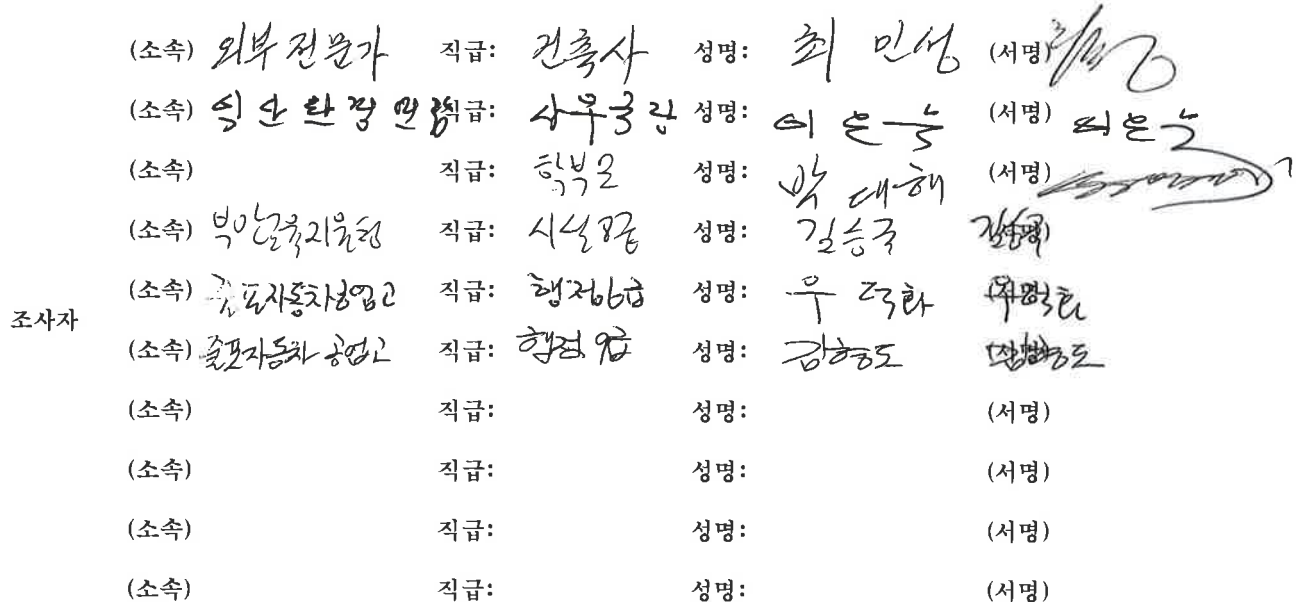 (소속) 외부 전문가 직급: 건축사 성명: 최 민성 (서명)
(소속) 직급: 사무국장 성명: 이은숙 (서명) 이은숙
(소속) 직급: 학부모 성명: 박 대해 (서명)
(소속) 부안교육지원청 직급: 시설8급 성명: 길승국 (서명) 길승국
(소속) 줄포자동차공업고 직급: 행정6급 성명: 우 덕화 (서명) 우덕화
조사자
(소속) 줄포자동차 공업고 직급: 행정 9급 성명: 김형도 (서명) 김형도
(소속) 직급: 성명: (서명)
(소속) 직급: 성명: (서명)
(소속) 직급: 성명: (서명)
(소속) 직급: 성명: (서명)